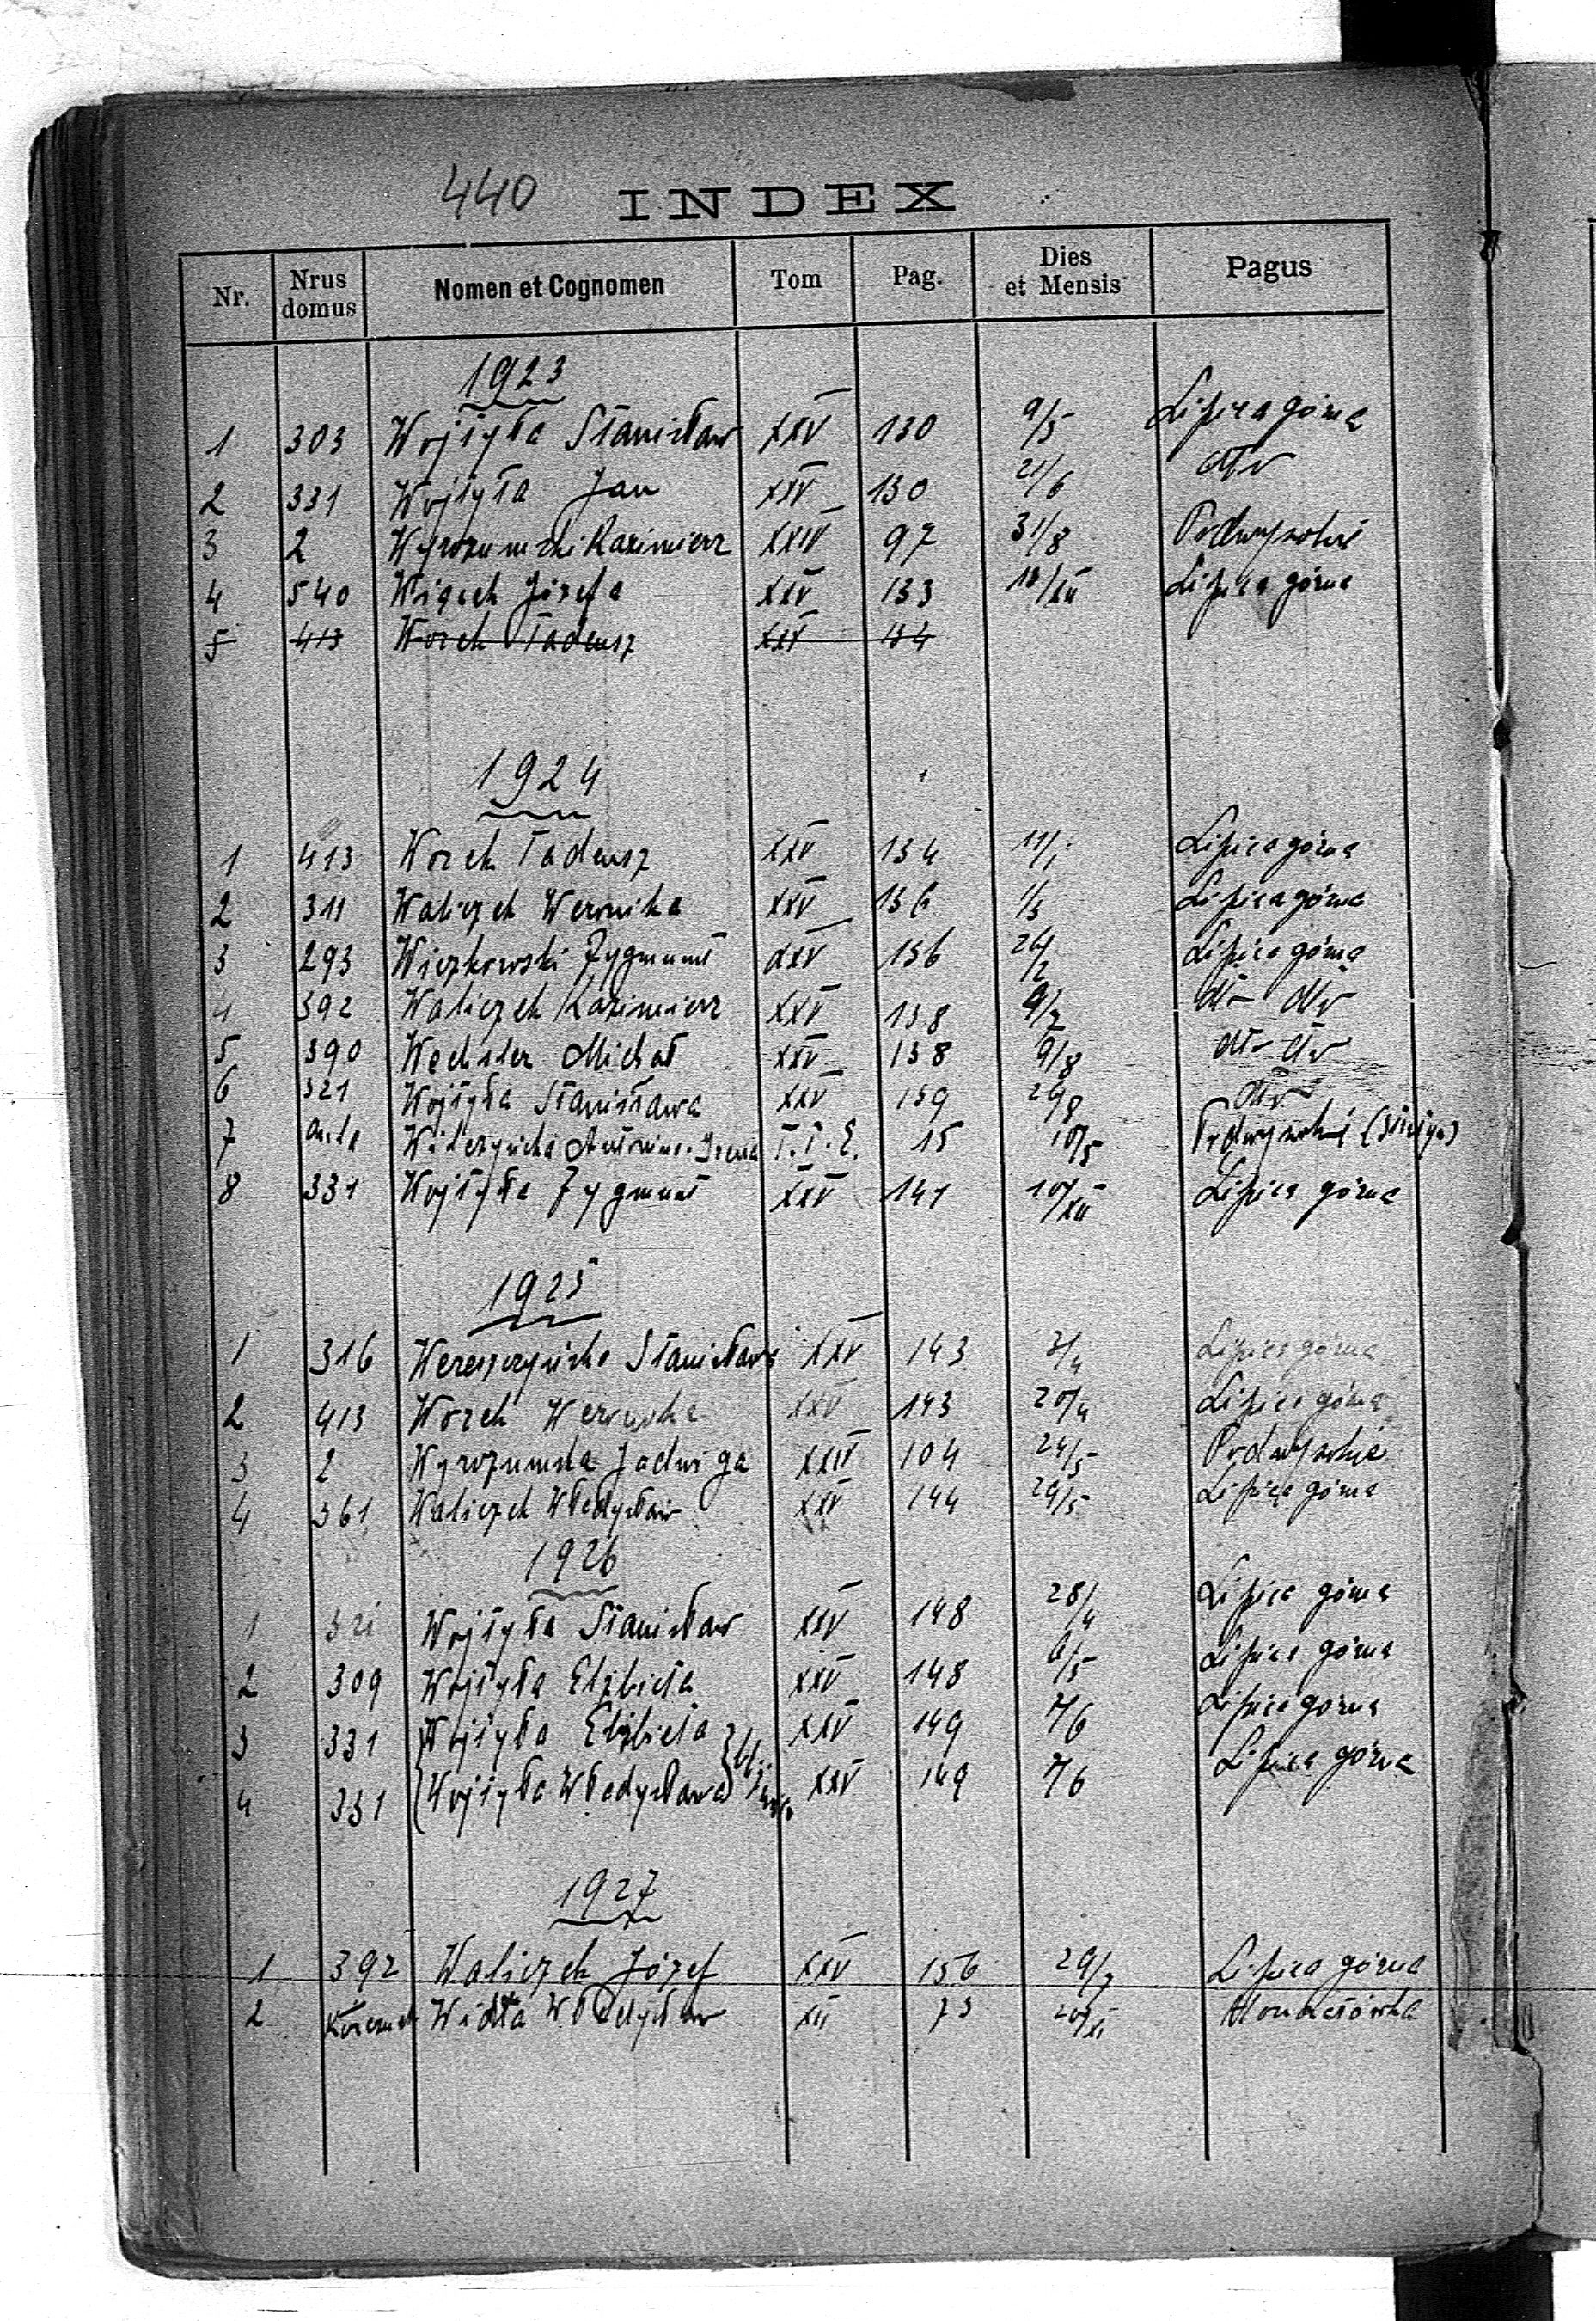 440 INDEX
Nr. Nrus domus Nomen et Cognomen Tom Pag. Dies et Mensis Pagus
1923
1 303 Wojtyła Stanisław XXV 130 9/5 Lipica górna
2 331 Wojtyła Jan XXV 130 21/6 dtto
3 2 Wyrozumski Kazimierz XXIV 97 31/8 Podwysokie
4 540 Wiącek Józefa XXV 133 18/XII Lipica górna
5 413 Worek Tadeusz XXV 134
1924
1 413 Worek Tadeusz XXV 134 11/1 Lipica górna
2 311 Waliczek Weronika XXV 136 1/3 Lipica górna
3 293 Wiczkowski Zygmunt XXV 136 26/2 Lipica górna
4 392 Waliczek Kazimierz XXV 138 9/7 dto dto
5 390 Wechsler Michał XXV 138 9/8 dto dto
6 321 Wojtyła Stanisława XXV 139 29/8 dto
7 Antonina-Irena 15 10/5 Podwysokie
8 331 Wojtyła Zygmunt XXV 141 10/XII Lipica górna
1925
1 316 Wereszczyńska Stanisława XXV 143 3/4 Lipica górna
2 413 Worek Weronika XXV 143 20/4 Lipica górna
3 2 Wyrozumska Jadwiga XXIV 104 24/5 Podwysokie
4 361 Waliczek Władysław XXV 144 29/5 Lipica górna
1926
1 321 Wojtyła Stanisław XXV 148 28/4 Lipica górna
2 309 Wojtyła Elżbieta XXV 148 6/5 Lipica górna
3 331 Wojtyła Elżbieta XXV 149 7/6 Lipica górna
4 331 Wojtyła Władysława XXV 149 7/6 Lipica górna
1927
1 392 Waliczek Józef XXV 156 29/7 Lipica górna
2 Władysław XII 73 20/XI